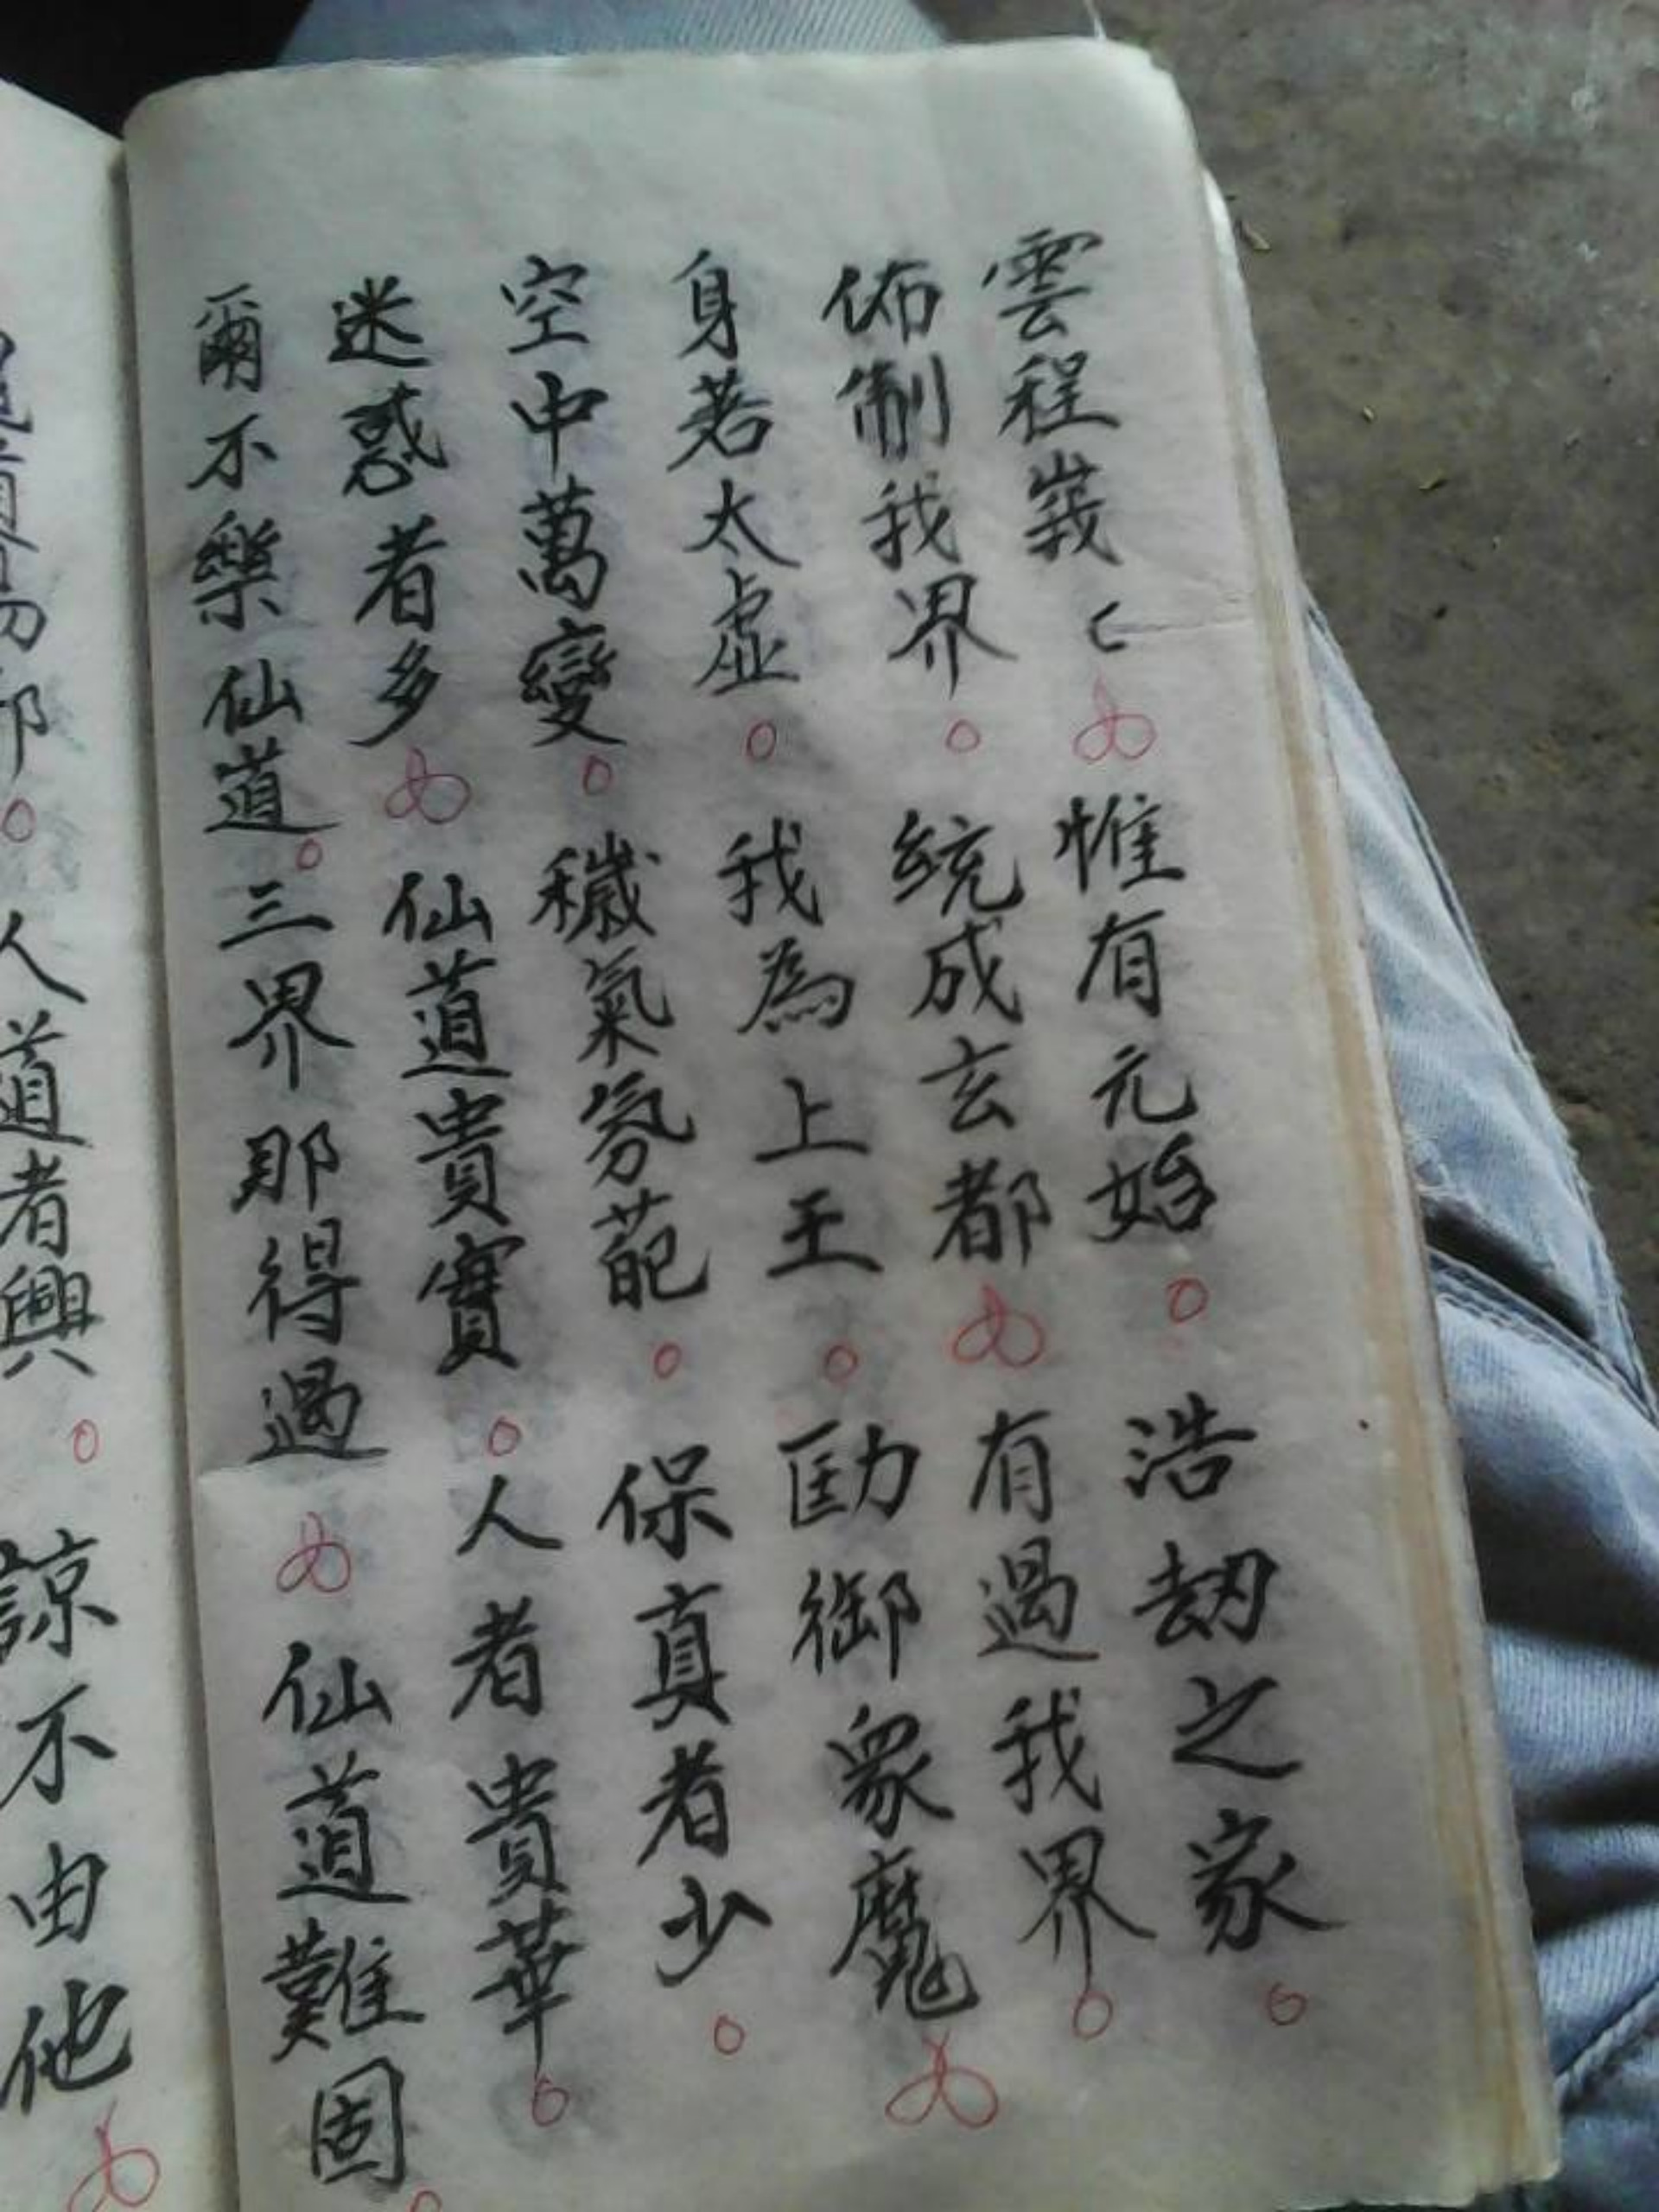 雲程峩々惟有元始浩劫之家
佈制我界統成玄都有過我界
身若太虛我為上王匡御眾魔
空中萬變穢氣氛葩保真者少
迷惑者多仙道貴實人者貴華
爾不樂仙道三界那得過仙道難固
人道者興諒不由他